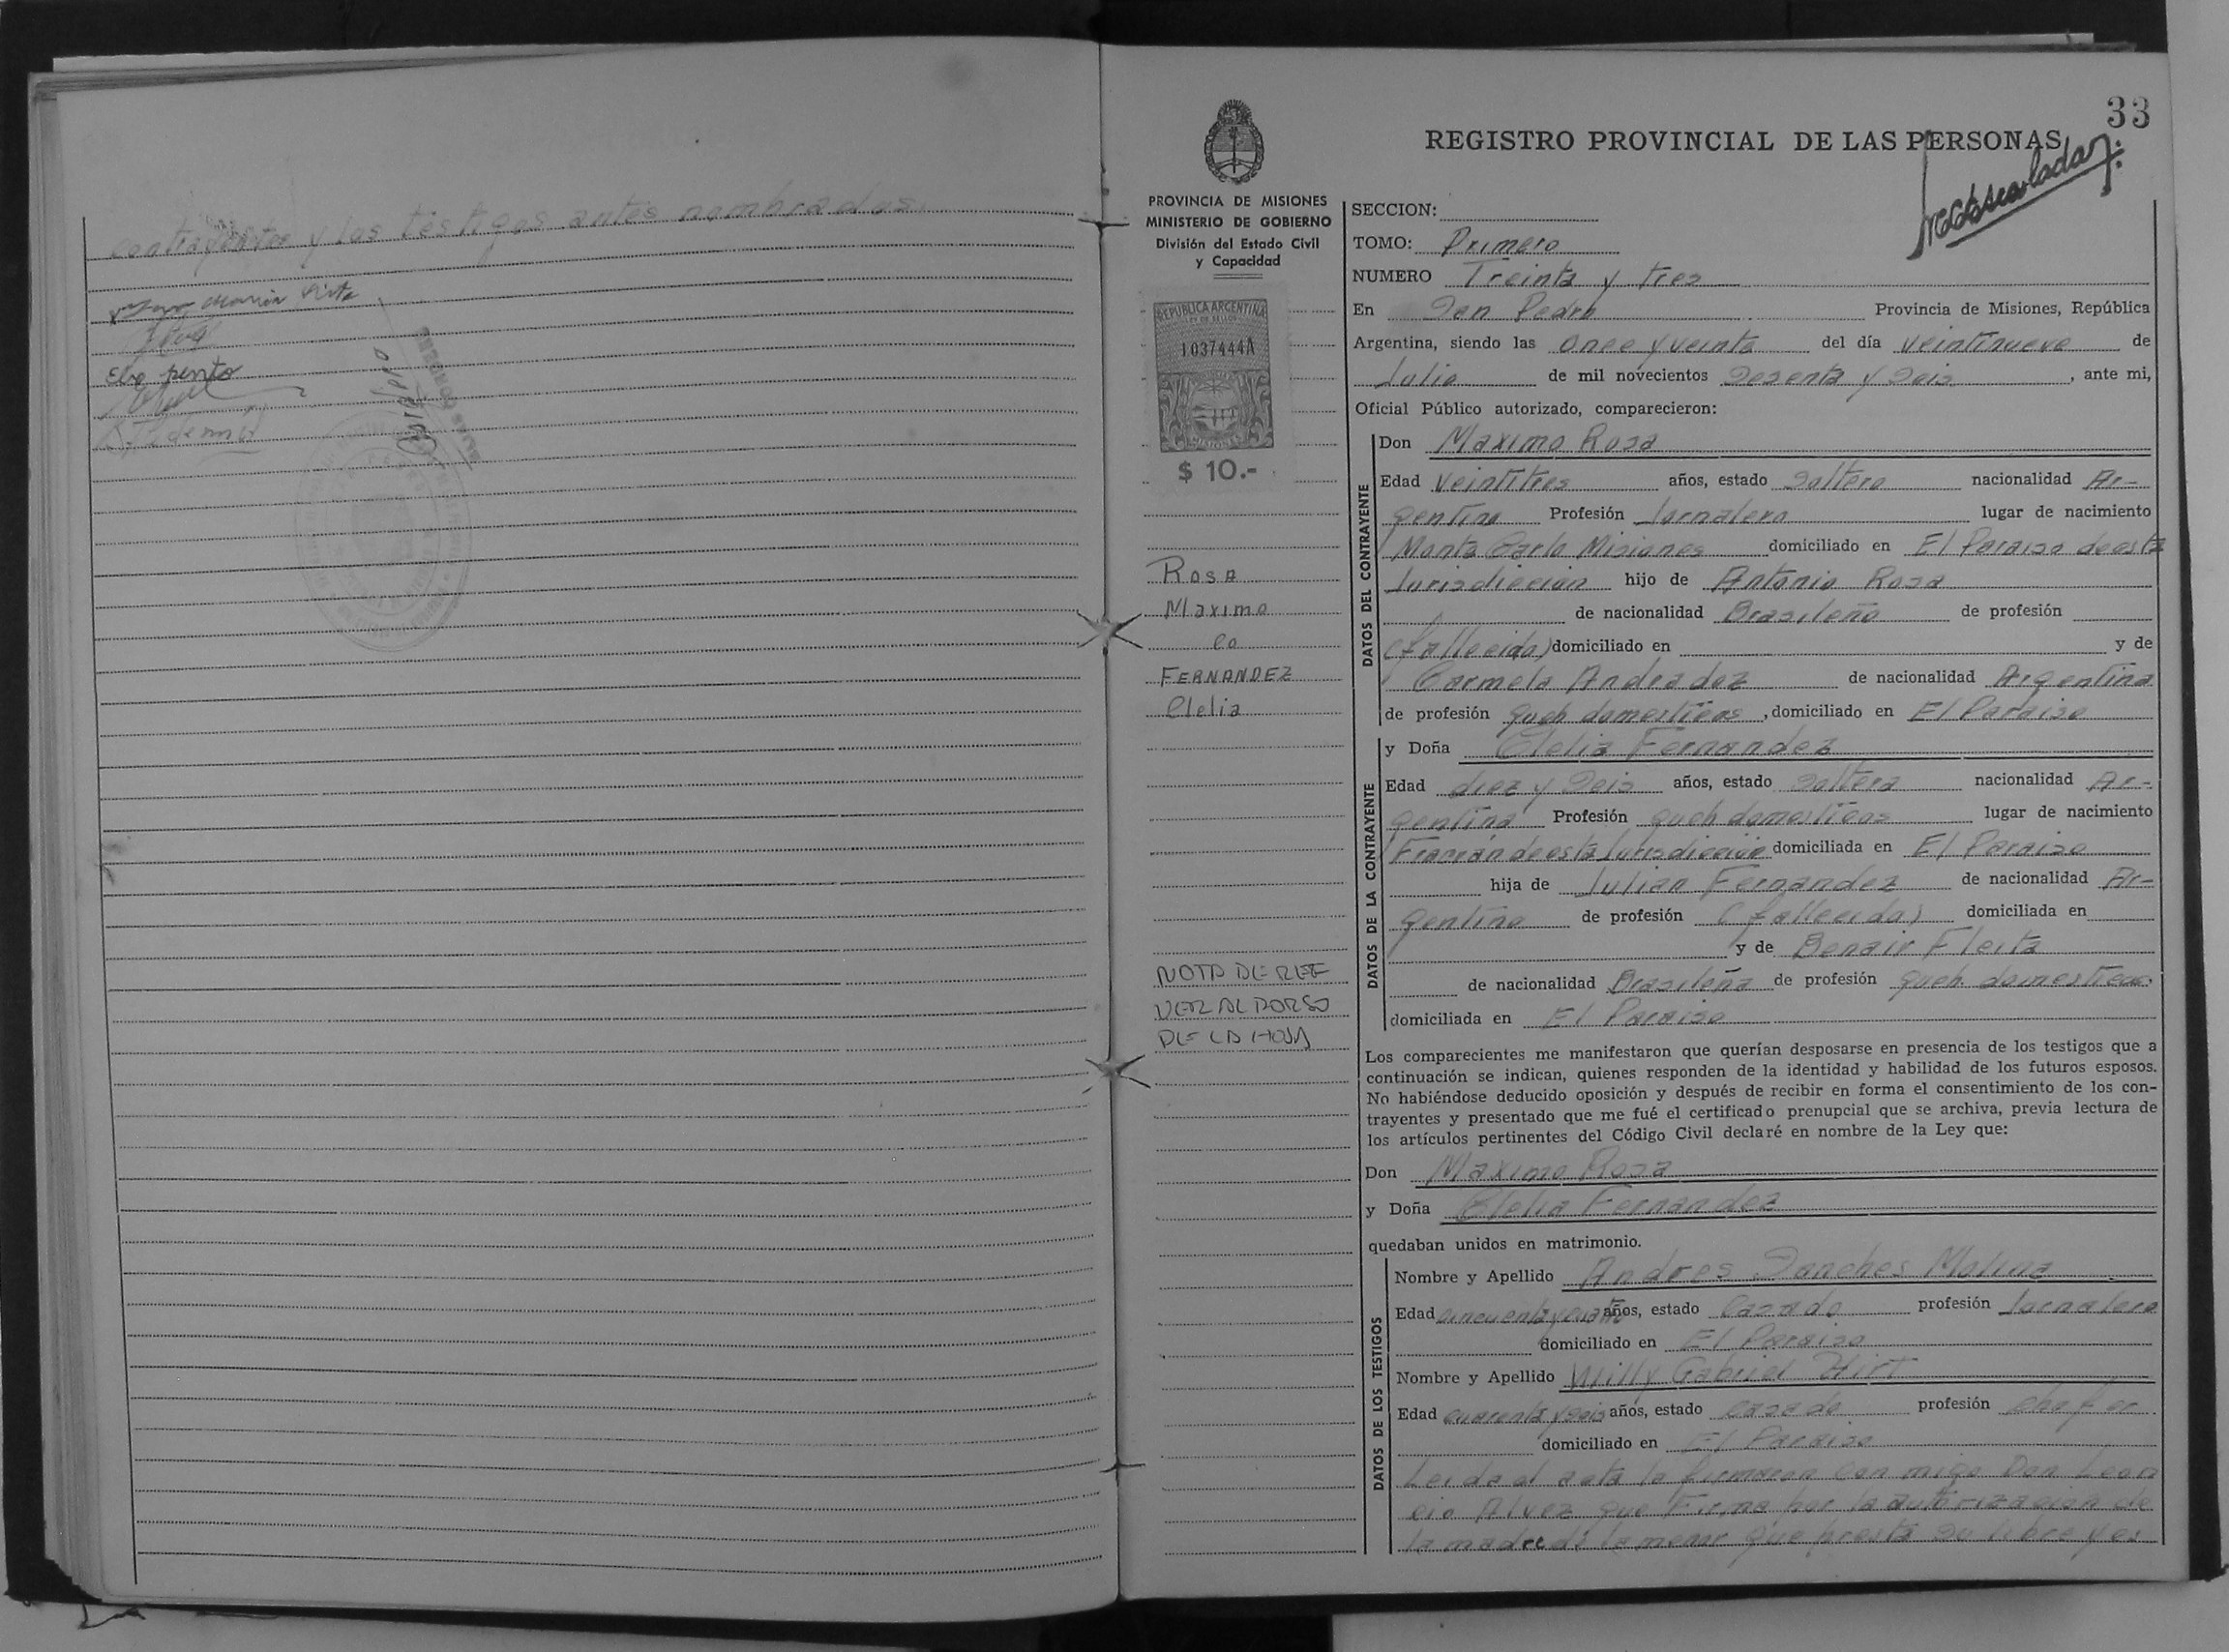 contrayentes y los testigos antes nombrados.
Maria Rita
Elva pinto
33
REGISTRO PROVINCIAL DE LAS PERSONAS
PROVINCIA DE MISIONES
MINISTERIO DE GOBIERNO
División del Estado Civil
y Capacidad
REPUBLICA ARGENTINA
LEY DE SELLOS
1037444A
MISIONES
$ 10.-
Rosa
Maximo
co
FERNANDEZ
Clelia
NOTA DE REF
VER AL DORSO
DE LA HOJA
SECCION:
TOMO: Primero
NUMERO Treinta y tres
En San Pedro Provincia de Misiones, República
Argentina, siendo las once y veinte del día veintinueve de
Julio de mil novecientos Sesenta y Seis, ante mi,
Oficial Público autorizado, comparecieron:
DATOS DEL CONTRAYENTE
Don Maximo Rosa
Edad Veintitres años, estado Soltero nacionalidad Ar-
gentino Profesión Jornalero lugar de nacimiento
Monte Carlo Misiones domiciliado en El Paraiso de esta
Jurisdiccion hijo de Antonio Rosa
de nacionalidad Brasileño de profesión
(fallecido) domiciliado en y de
Carmela Andradez de nacionalidad Argentina
de profesión queh domesticos, domiciliado en El Paraiso
DATOS DE LA CONTRAYENTE
y Doña Clelia Fernandez
Edad diez y Seis años, estado Soltera nacionalidad Ar-
gentina Profesión queh domesticos lugar de nacimiento
Fracran de esta Jurisdiccion domiciliada en El Paraiso
hija de Julian Fernandez de nacionalidad Ar-
gentino de profesión (fallecido) domiciliada en
y de Benair Fleita
de nacionalidad Brasileña de profesión queh domesticos.
domiciliada en El Paraiso
Los comparecientes me manifestaron que querían desposarse en presencia de los testigos que a
continuación se indican, quienes responden de la identidad y habilidad de los futuros esposos.
No habiéndose deducido oposición y después de recibir en forma el consentimiento de los con-
trayentes y presentado que me fué el certificado prenupcial que se archiva, previa lectura de
los artículos pertinentes del Código Civil declaré en nombre de la Ley que:
Don Maximo Rosa
y Doña Clelia Fernandez
quedaban unidos en matrimonio.
DATOS DE LOS TESTIGOS
Nombre y Apellido Andres Sanches Molina
Edad cincuenta y cuatro años, estado Casado profesión Jornalero
domiciliado en El Paraiso
Nombre y Apellido Willy Gabriel Hirt
Edad cuarenta y seis años, estado casado profesión chofer
domiciliado en El Paraiso
Leida el acta la firmaron con migo Don Leon
cio Alvez que Firma por la autorizacion de
la madre de la menor que presta su libre y es